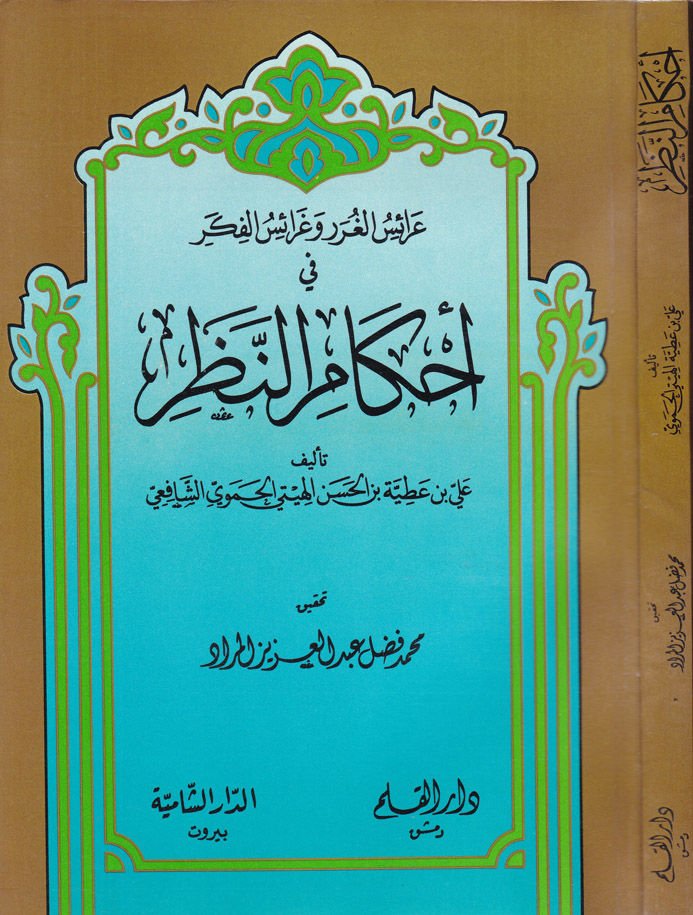 عَرائِسُ الغُرَر وَغَرائِسُ الفِكَرِ
في
أَحْكامِ النَّظَرِ
تأليف
عَلِيّ بن عَطِيَّة بن الحَسَن الهِيتي الحَمَوِي الشَّافِعِيّ
تحقيق
محمد فضل عبد العزيز المراد
دار القلم
دمشق
الدّار الشّاميّة
بيروت
أَحْكامِ النَّظَرِ
تأليف
عَلِيّ بن عَطِيَّة الهِيتي الحَمَوِي
تحقيق
محمد فضل عبد العزيز المراد
دار القلم
دمشق